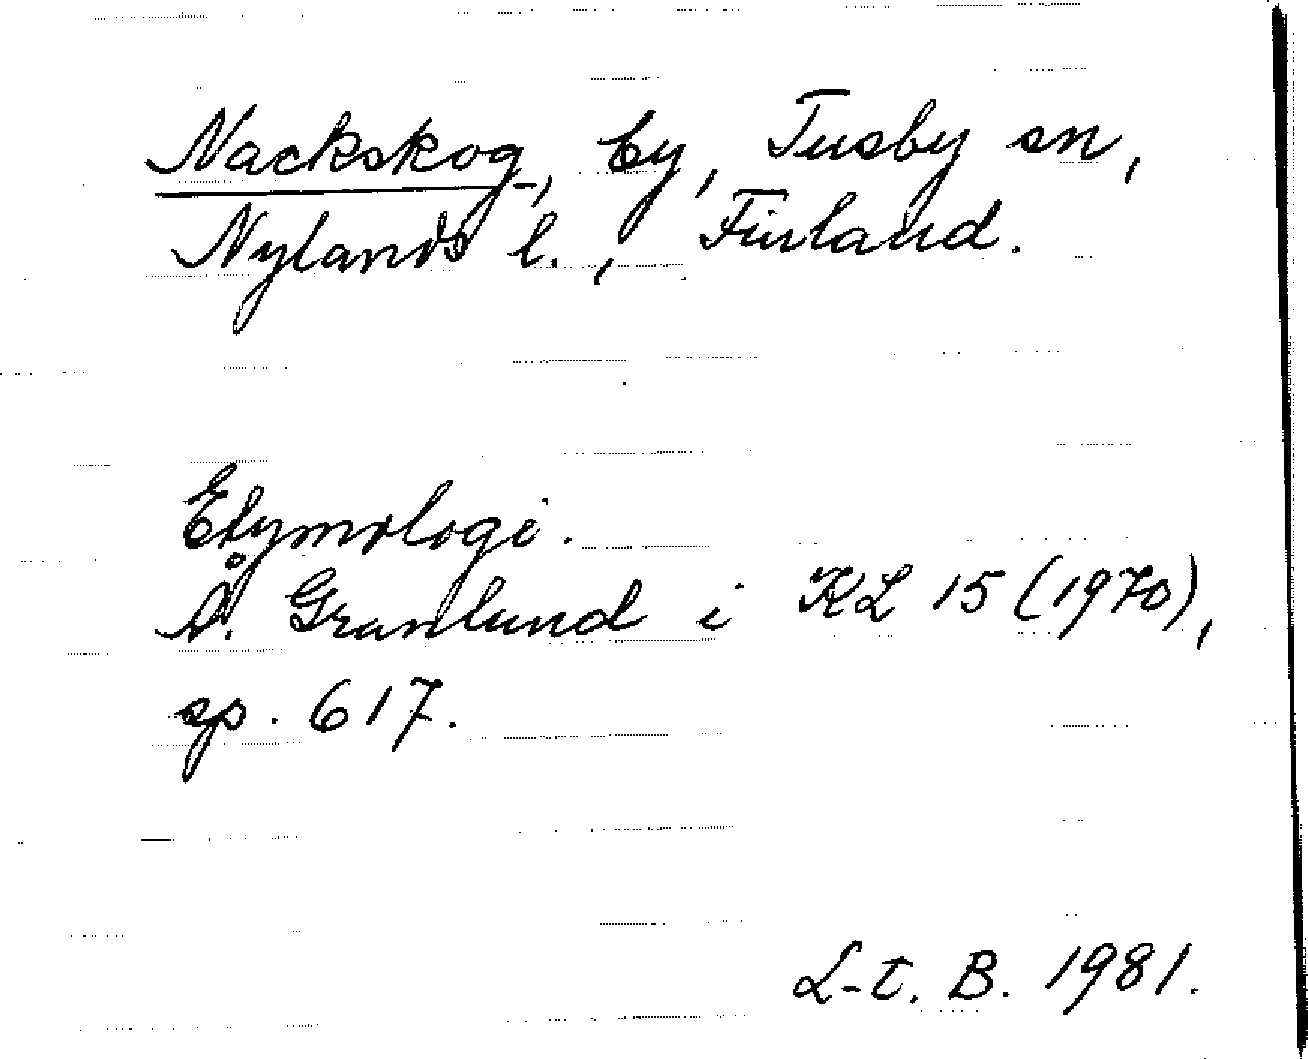 Nackskog, by, Tusby sn,
Nylands l., Finland.
Etymologi.
Å. Granlund i KL 15 (1970),
sp. 617.
L-t. B. 1981.